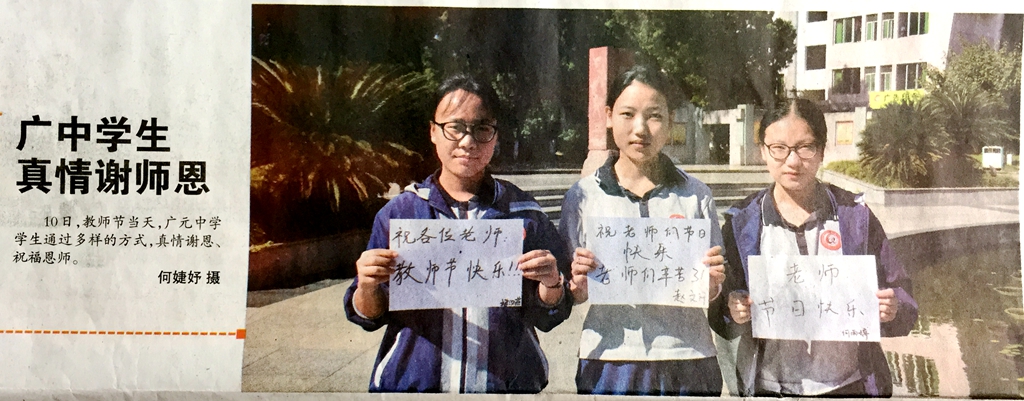 广中学生
真情谢师恩
10日,教师节当天,广元中学
学生通过多样的方式,真情谢恩、
祝福恩师。
何婕妤 摄
祝各位老师:
教师节快乐!!
祝老师们节日
快乐
老师们辛苦了!
老师
节日快乐